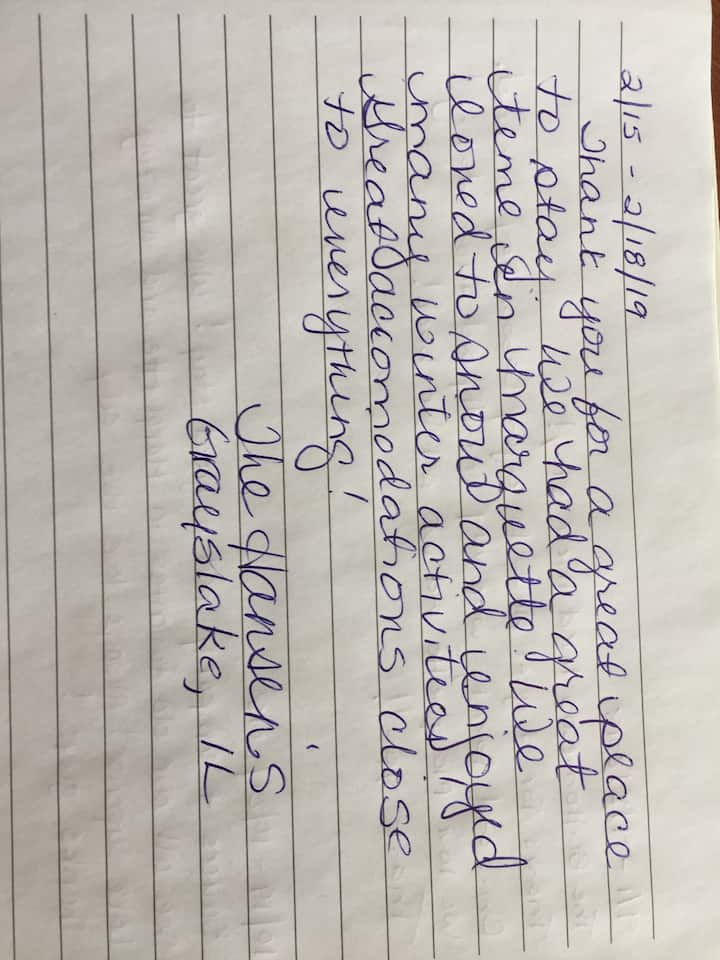 2/15 - 2/18/19
Thank you for a great place
to stay. We had a great
time in Marquette! We
loved to snow and enjoyed
many winter activities,
Great accomodations close
to everything!
The Hansen's
Grayslake, IL